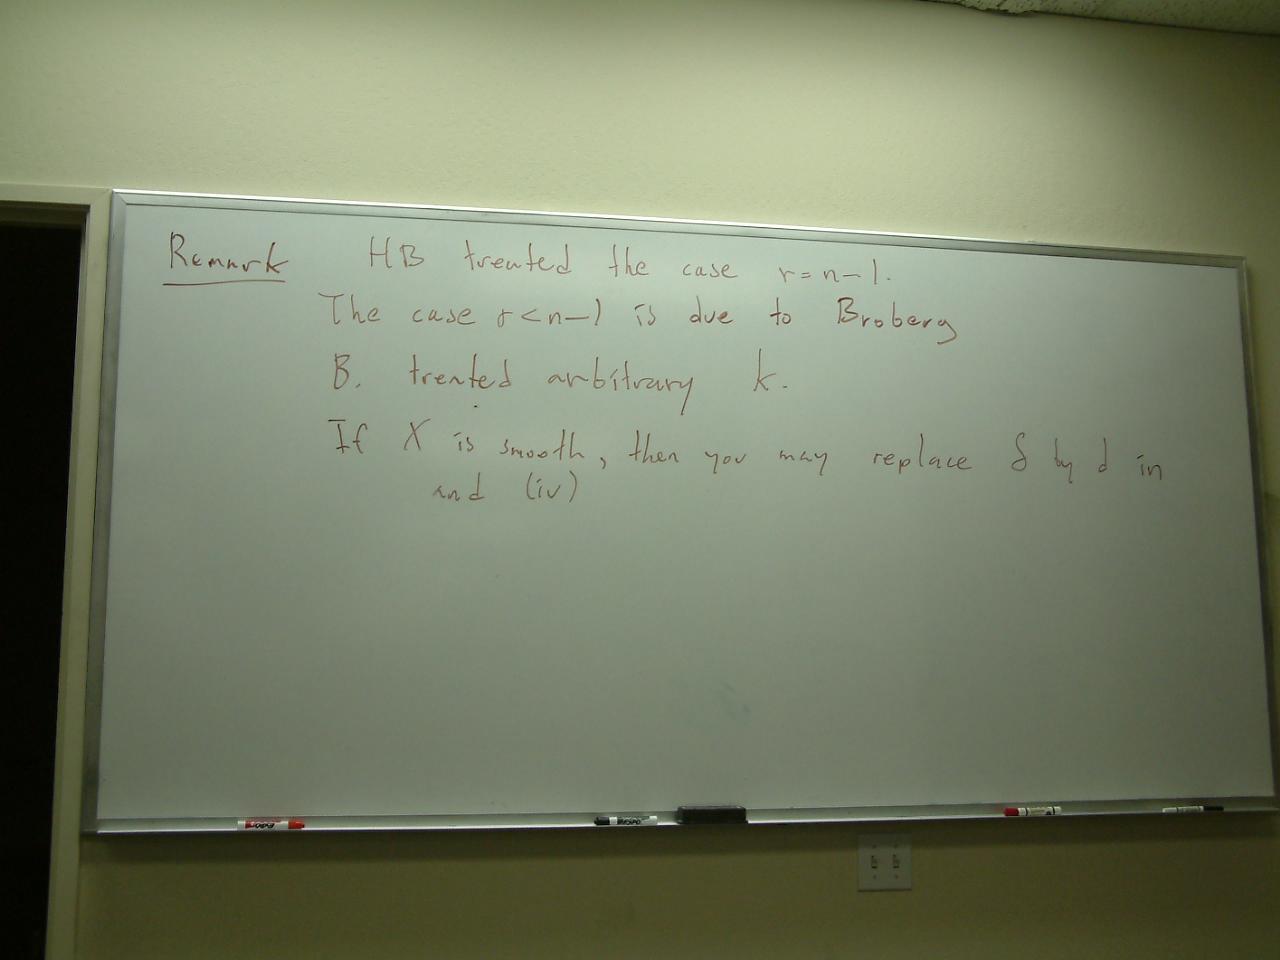 Remark HB treated the case r = n-1.
The case r < n-1 is due to Broberg
B. treated arbitrary k.
If X is smooth, then you may replace δ by d in
and (iv)
EXPO